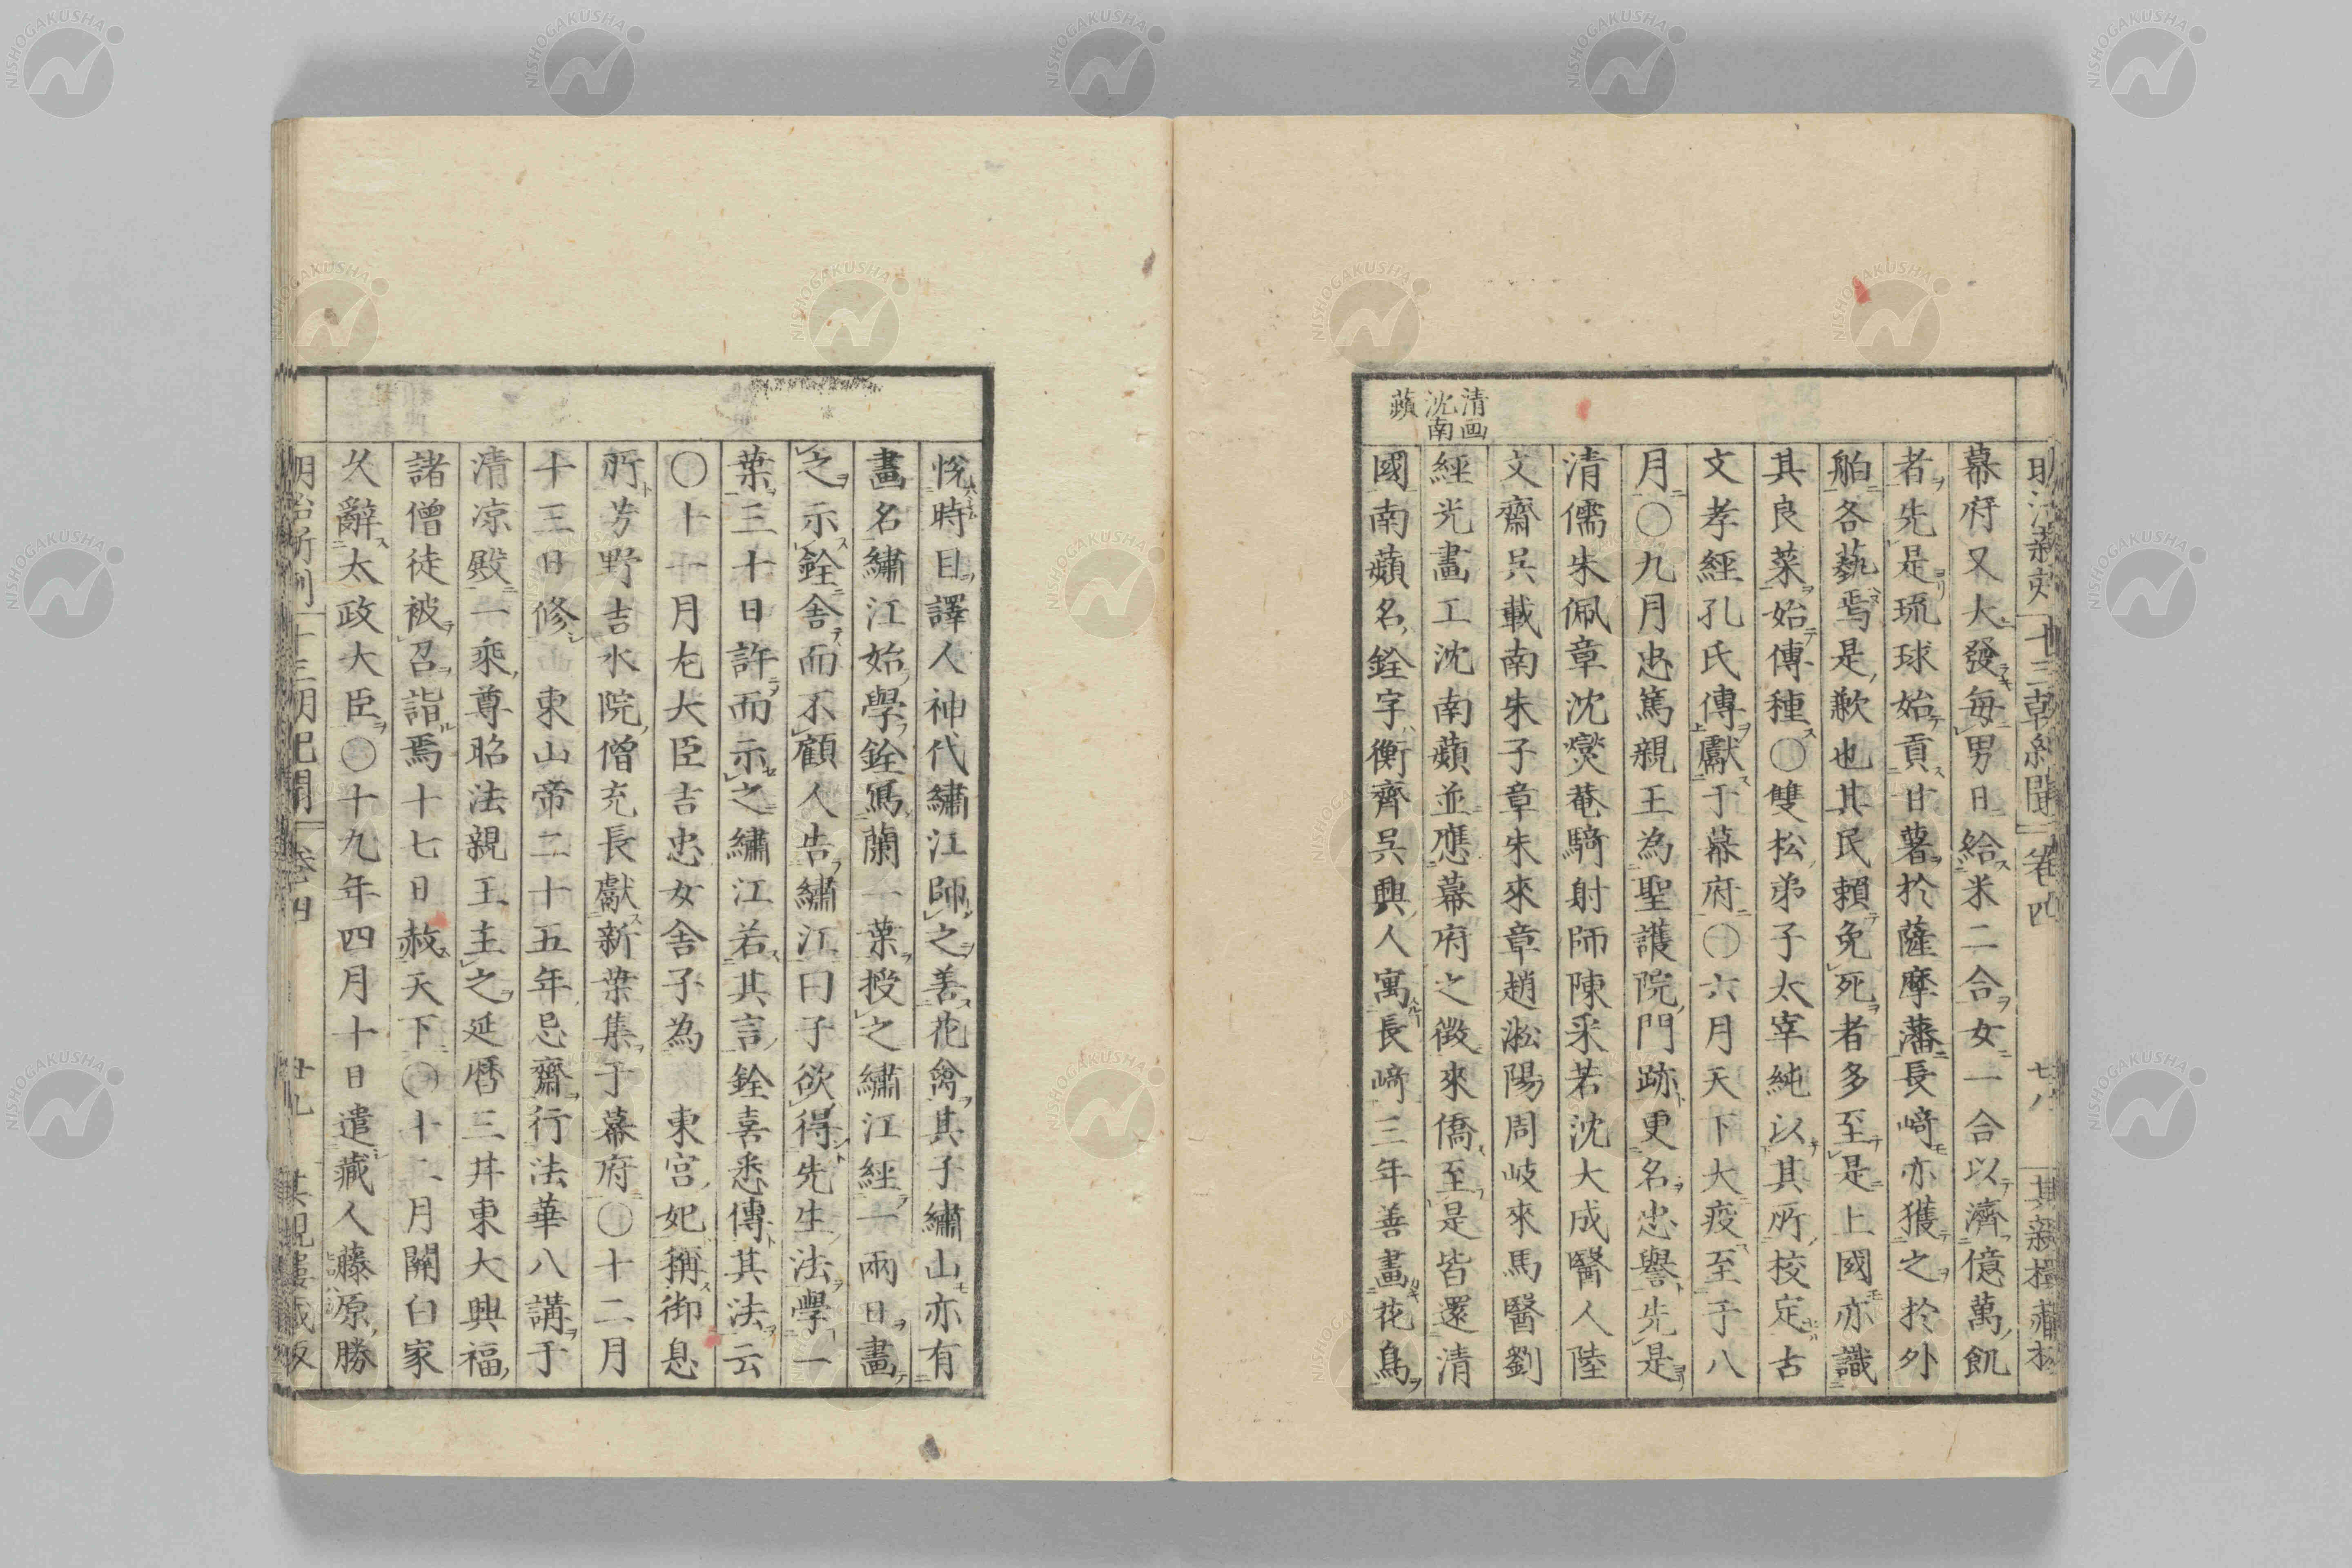 幕府又大發每男日給米二合女一合以濟億萬飢
者先是琉球始貢甘薯於薩摩藩長崎亦獲之於外
舶各藝焉是歉也其民賴免死者多至是上國亦識
其良菜始傳種〇雙松弟子太宰純以其所校定古
文孝經孔氏傳獻于幕府〇六月天下大疫至于八
月〇九月忠篤親王為聖護院門跡更名忠譽先是
清儒朱佩章沈燮菴騎射師陳采若沈大成醫人陸
文齋吳載南朱子章朱來章趙淞陽周岐來馬醫劉
經光畫工沈南蘋並應幕府之徵來僑至是皆還清
國南蘋名銓字衡齊吳興人寓長崎三年善畫花鳥
清画
沈南
蘋
悅時目譯人神代繡江師之善花禽其子繡山亦有
畫名繡江始學銓寫蘭一葉授之繡江經一兩日畫
之示銓舍而不顧人告繡江曰子欲得先生法學一
葉三十日許而示之繡江若其言銓喜悉傳其法云
〇十一月左大臣吉忠女舍子為東宮妃稱御息
所芳野吉水院僧充長獻新葉集于幕府〇十二月
十三日修東山帝二十五年忌齋行法華八講于
清凉殿一乘尊昭法親王主之延曆三井東大興福
諸僧徒被召詣焉十七日赦天下〇十二月關白家
久辭太政大臣〇十九年四月十日遣藏人藤原勝
NISHOGAKUSHA